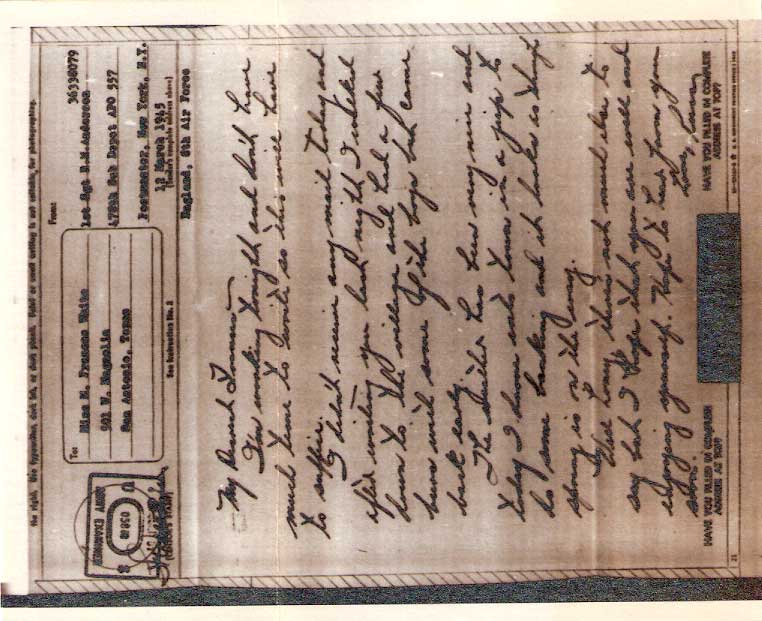 the right. Use typewriter, dark ink, or dark pencil. Faint or small writing is not suitable for photographing.
To:
Miss E. Frances White
901 W. Magnolia
San Antonio, Texas
See Instruction No. 2
From:
1st Sgt B.M. Anderson 36338079
478th Sub Depot APO 557
Postmaster, New York, N.Y.
12 March 1945
(Sender's complete address above)
England, 8th Air Force
ARMY EXAMINER
My Dearest Frances
I'm working tonight and don't have
much time to write so this will have
to suffice.
I didn't receive any mail today and
after writing you last night I walked
down to the village and had a few
beers with some of the boys but came
back early.
The weather has been very nice and
today I drove into town in a jeep to
do some banking and it looks as though
spring is on the way.
Well honey there's not much else to
say but I hope that you are well and
enjoying yourself. Hope to hear from you
soon.
Love,
HAVE YOU FILLED IN COMPLETE
ADDRESS AT TOP?
HAVE YOU FILLED IN COMPLETE
ADDRESS AT TOP?